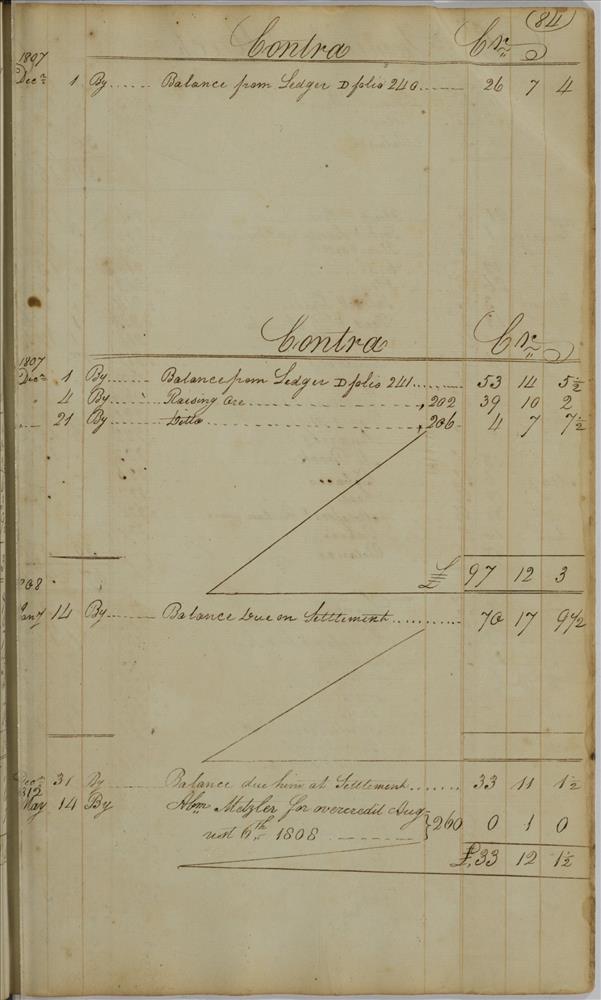 (84)
Contra Cr
1807
Decr 1 By ...... Balance from Ledger D folio 240 ........ 26 7 4
Contra Cr
1807
Decr 1 By ...... Balance from Ledger D folio 241 ........ 53 14 5½
" 4 By ...... Raising Ore ........ , 202 39 10 2
" 21 By ...... Ditto ........ , 206 4 7 7½
£ 97 12 3
808
Jany 14 By ...... Balance Due on Settlement ........ 70 17 9½
Decr 31 By Balance due him at Settlement ....... 33 11 1½
812
May 14 By Abm Metzler for overcredit Aug-
ust 6th 1808 } 260 0 1 0
£ 33 12 1½